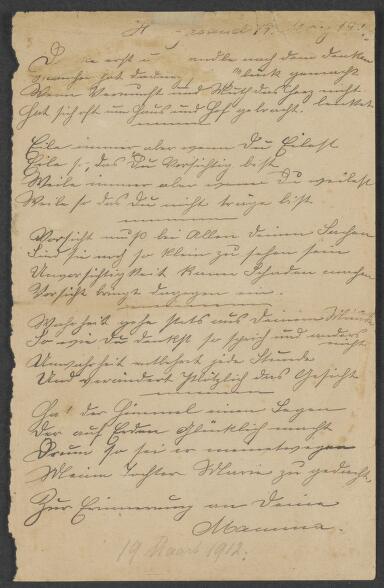 Erst und ende nach dem denken
mancher hat dadurch Glück gemacht
Wenn Vernunft und Muth das Herz nicht lenket
Hat sich oft um Haus und Hof gebracht.
Eile immer aber wenn Du Eilest
Eile so, das Du Vorsichtig bist
Weile immer aber wenn Du weilest
Weile so das Du nicht träge bist
Vorsicht muß bei Allen Deinen Sachen
Sind sie noch so klein zu sehen sein
Unvorsichtigkeit kann Schaden machen
Vorsicht bringt dagegen ein
Wahrheit gehe stets aus Deinem Munde
So wie Du denkst so sprich und anders nicht
Unwahrheit entehret jede Stunde
Und verändert Plötzlich das Gesicht
Hat der Himmel einen Segen
Der auf Erden Glücklich macht
Drum so sei er meinetwegen
Meine Tochter Marie zu gedacht
Zur Erinnerung an Deine
Mamma.
19 Maars 1912.